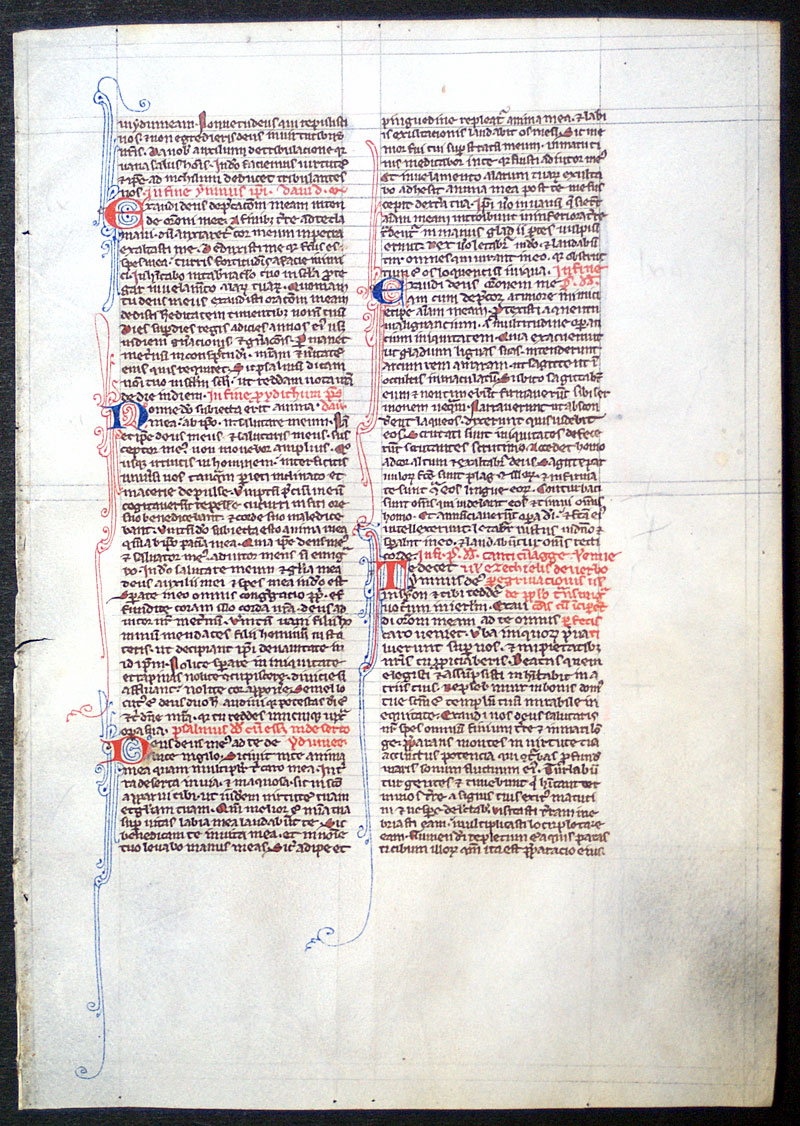 in ydumeam. Nonne tu deus qui repulisti
nos. & non egredieris deus in uirtutibus
nr̄is. Da nob auxilium de tribulatione qr
uana salus hōis. In dō faciemus uirtutē
& ip̄e ad nichilum deducet tribulantes
nos. In fine ymnus ip̄i dauid
Exaudi deus dep̄catōem meam inten
de orōni mee. A finib; tr̄e ad te cla
maui. dū anxiaret̄ cor meum in petra
exaltasti me. Deduxisti me qr f̄cus es
spes mea. turris fortitudīs a facie inimi
ci. Inhabitabo in tab̄naclo tuo in sc̄la p̄te
gar in uelam̄to alarum tuarum. Quoniam
tu deus meus exaudisti orat̄oem meam
dedisti hereditatem timentibus nomen tuū
Dies sup dies regis adicies annos eius usq;
in diem gn̄ationis & gn̄aōnis. P̄manet
in et̄nū in conspectu dī. miam & u̅itatē
eius quis requiret. Sic psalmū dicam
nōi tuo in sc̄lm sc̄li. ut reddam uota mea
de die in diem. In fine p ydithum ps̄. dauid
Nonne dō subiecta erit anima
mea. ab ip̄o .n. salutare meum. Nā
& ip̄e deus meus & salutaris meus. sus
ceptor me9 non mouebor amplius. Q
usq; irruitis in hominem. int̄ficitis
uniuersi uos tanq̄m parieti inclinato et
macerie depulse. Unptm̄ p̄ciū meū
cogitauer̄t repellere. cucurri in siti ore
suo benedicebant. & corde suo maledice
bant. Untm̄ dō subiecta esto anima mea
qm̄ ab ip̄o pacīa mea. Quia ip̄e deus me9
& saluator me9. adiutor meus nō emig̃
bo. In dō salutare meum & gl̄ia mea
deus auxilii mei & spes mea in dō est
Sp̄ate in eo omnis cong̃gatio ppl̄i. ef
fundite coram illo corda ur̄a. deus ad
iutor nr̄ in et̄nū. Untm̄ uani filii ho
minū mendaces filii hominū in sta
teris. ut decipiant ip̄i de uanitate in
id ip̄m. Nolite sp̄are in iniquitate
et rapinas nolite cc̄upiscere. diuicie si
affluant. nolite cor apponere. Semel lo
cutus e deus duo h̄ audiui. qr potestas dī e.
& t̄ dn̄e mīa. qr tu reddes unicuiq; iux̄
opera sua. psalmus dd cū ess; in deserto
Deus deus me9 ad te de ydumee
luce uigilo. Sitiuit in te anima
mea quam multiplic̄t t̄ caro mea. In tr̄
ra deserta inuia. & inaquosa. sic in sc̄o
apparui tibi. ut uidem uirtutē tuam
et gl̄iam tuam. Qm̄ melior e mīa tua
sup uitas labia mea laudabūt te. Sic
benedicam te in uita mea. et in noīe
tuo leuabo manus meas. Sic̄ adipe et
pinguedine repleat̄ anima mea. & labi
is exultationis laudabit os meū. Sic me
mor fui tui sup stratū meum. in matuti
nis meditabor in te. qr fuisti adiutor me9
Et in uelamento alarum tuarum exulta
bo adhesit anima mea post te me sus
cepit dext̄a tua. Ip̄i ūo in uanū q̄sier̄t
aīam meam introibunt in inferiora tr̄e
tr̄dent̄ in manus gladii p̄tes uulpiū
erunt. Rex ūo letabit̄ in dō. & laudabū
tur omnes qui iurant in eo. qr obstruc̄
tum e os loquentis iniqua. In fine
Exaudi deus or̄onem meā ps̄. dd.
cum cum dep̄cor. a timore inimici
eripe aīam meam. P̄texisti a quentu
malignantium. a multitudine op̄an
tium iniquitatem. Quia exacuerunt
ut gladium linguas suas. intenderunt
arcum rem amaram. ut sagittent ī
occultis inmaculatū. Subito sagittabt̄
eum & non timebūt. firmauer̄t sibi ser
monem neq̄m. Narrauerunt ut abscon
der̄nt laqueos. dixerunt quis uidebit
eos. Scrutati sunt iniquitates. defece
rūt scrutantes scrutinio. Accedet homo
ad cor altum & exaltabit̄ deus. Sagitte par
uulorum f̄ce sunt plage eorum. & infirma
te sunt c̄ eos lingue eorum. Conturbati
sunt om̄s qui uidebant eos & timuit om̄is
homo. Et annūciauer̄t op̄a dī. & f̄ca ei9
intellexerunt. Letabit̄ iustus in dn̄o &
sp̄abit in eo. & laudabūtur om̄s recti
corde. In fi. ps̄. dd. cantic̄ aggei & ieremie
Te decet uł ezechielis de uerbo
ymnus de9 pegrinacionis uł
in syon & tibi reddet̄ de pplo
uotum in ierlm̄. Exau
di or̄onem meam ad te omnis
caro ueniet. Uba iniquorum p̄ua
luerunt sup nos. & impietatibus
nr̄is tu ppiciaberis. Beatus quem
elegisti & assūpsisti inhītabit in a
triis tuis. Replebimur in bonis dom9
tue sc̄m e templū tuū mirabile in
equitate. Exaudi nos deus salutaris
nr̄ spes omniū finium tr̄e & in mari lō
ge. Pp̄arans montes in uirtute tua
accinctus potencia. qui ɔturbas p̄fundū
maris sonum fluctuum ei9. Turbabū
tur gentes & timebunt qui hītant ter
minos tr̄e. a signis tuis exit9 matuti
ni & uesp̄e delectabis. Uisitasti tr̄am & ine
briasti eam. multiplicasti locupletare
eam. Flumen dī repletum e aquis parasti
cibum illorum qm̄ ita est p̄paracio eius.